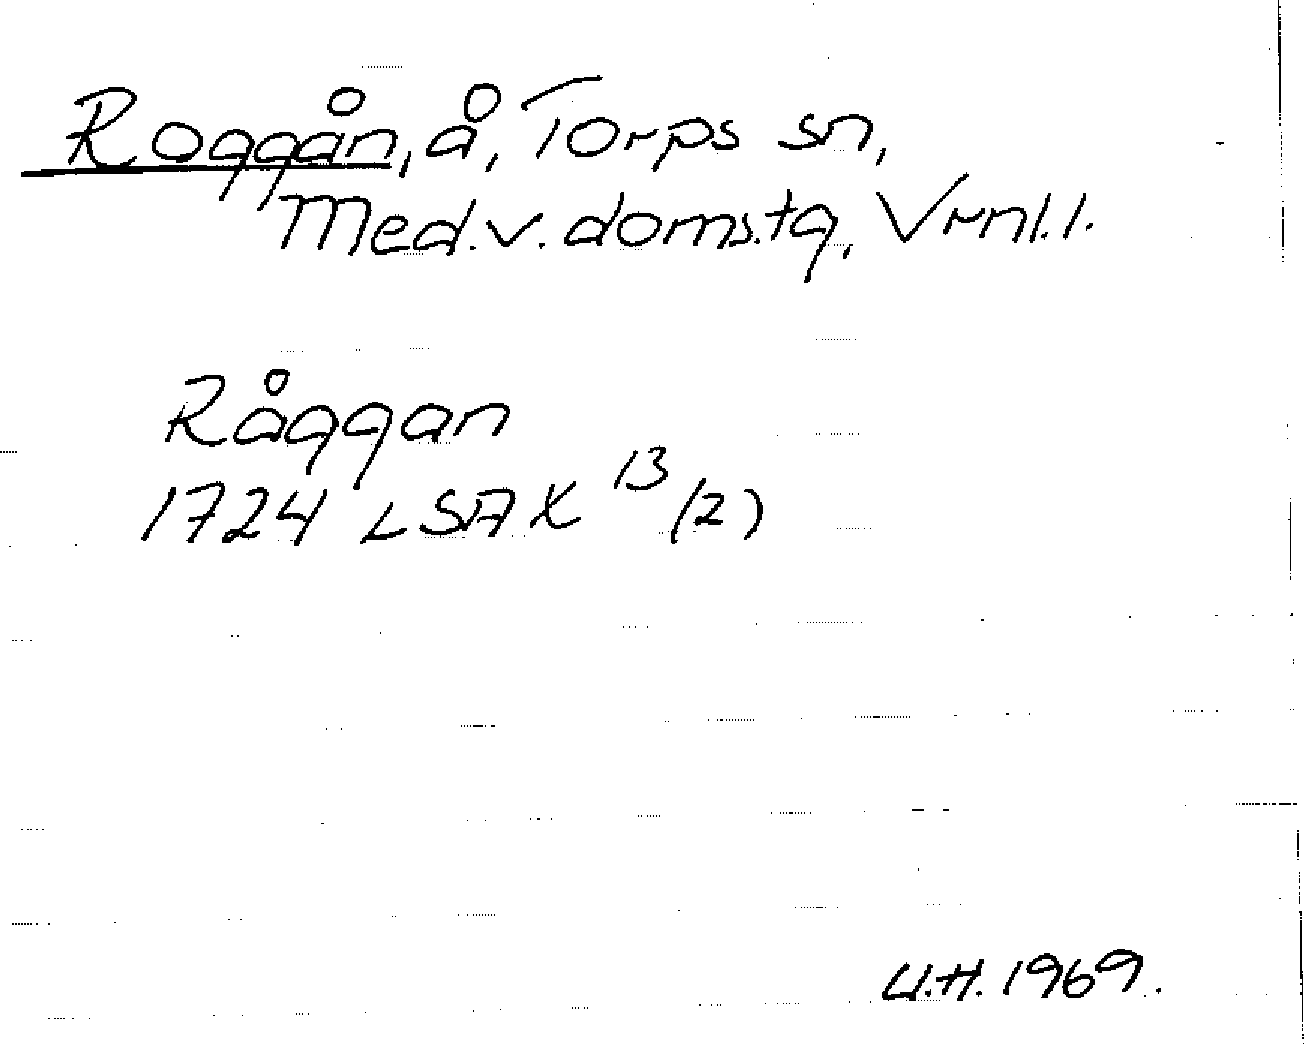 Roggån, å, Torps sn,
Med.v.doms.tg, Vrnl.l.
Råggan
1724 LSA X 13/(2)
U.H. 1969.